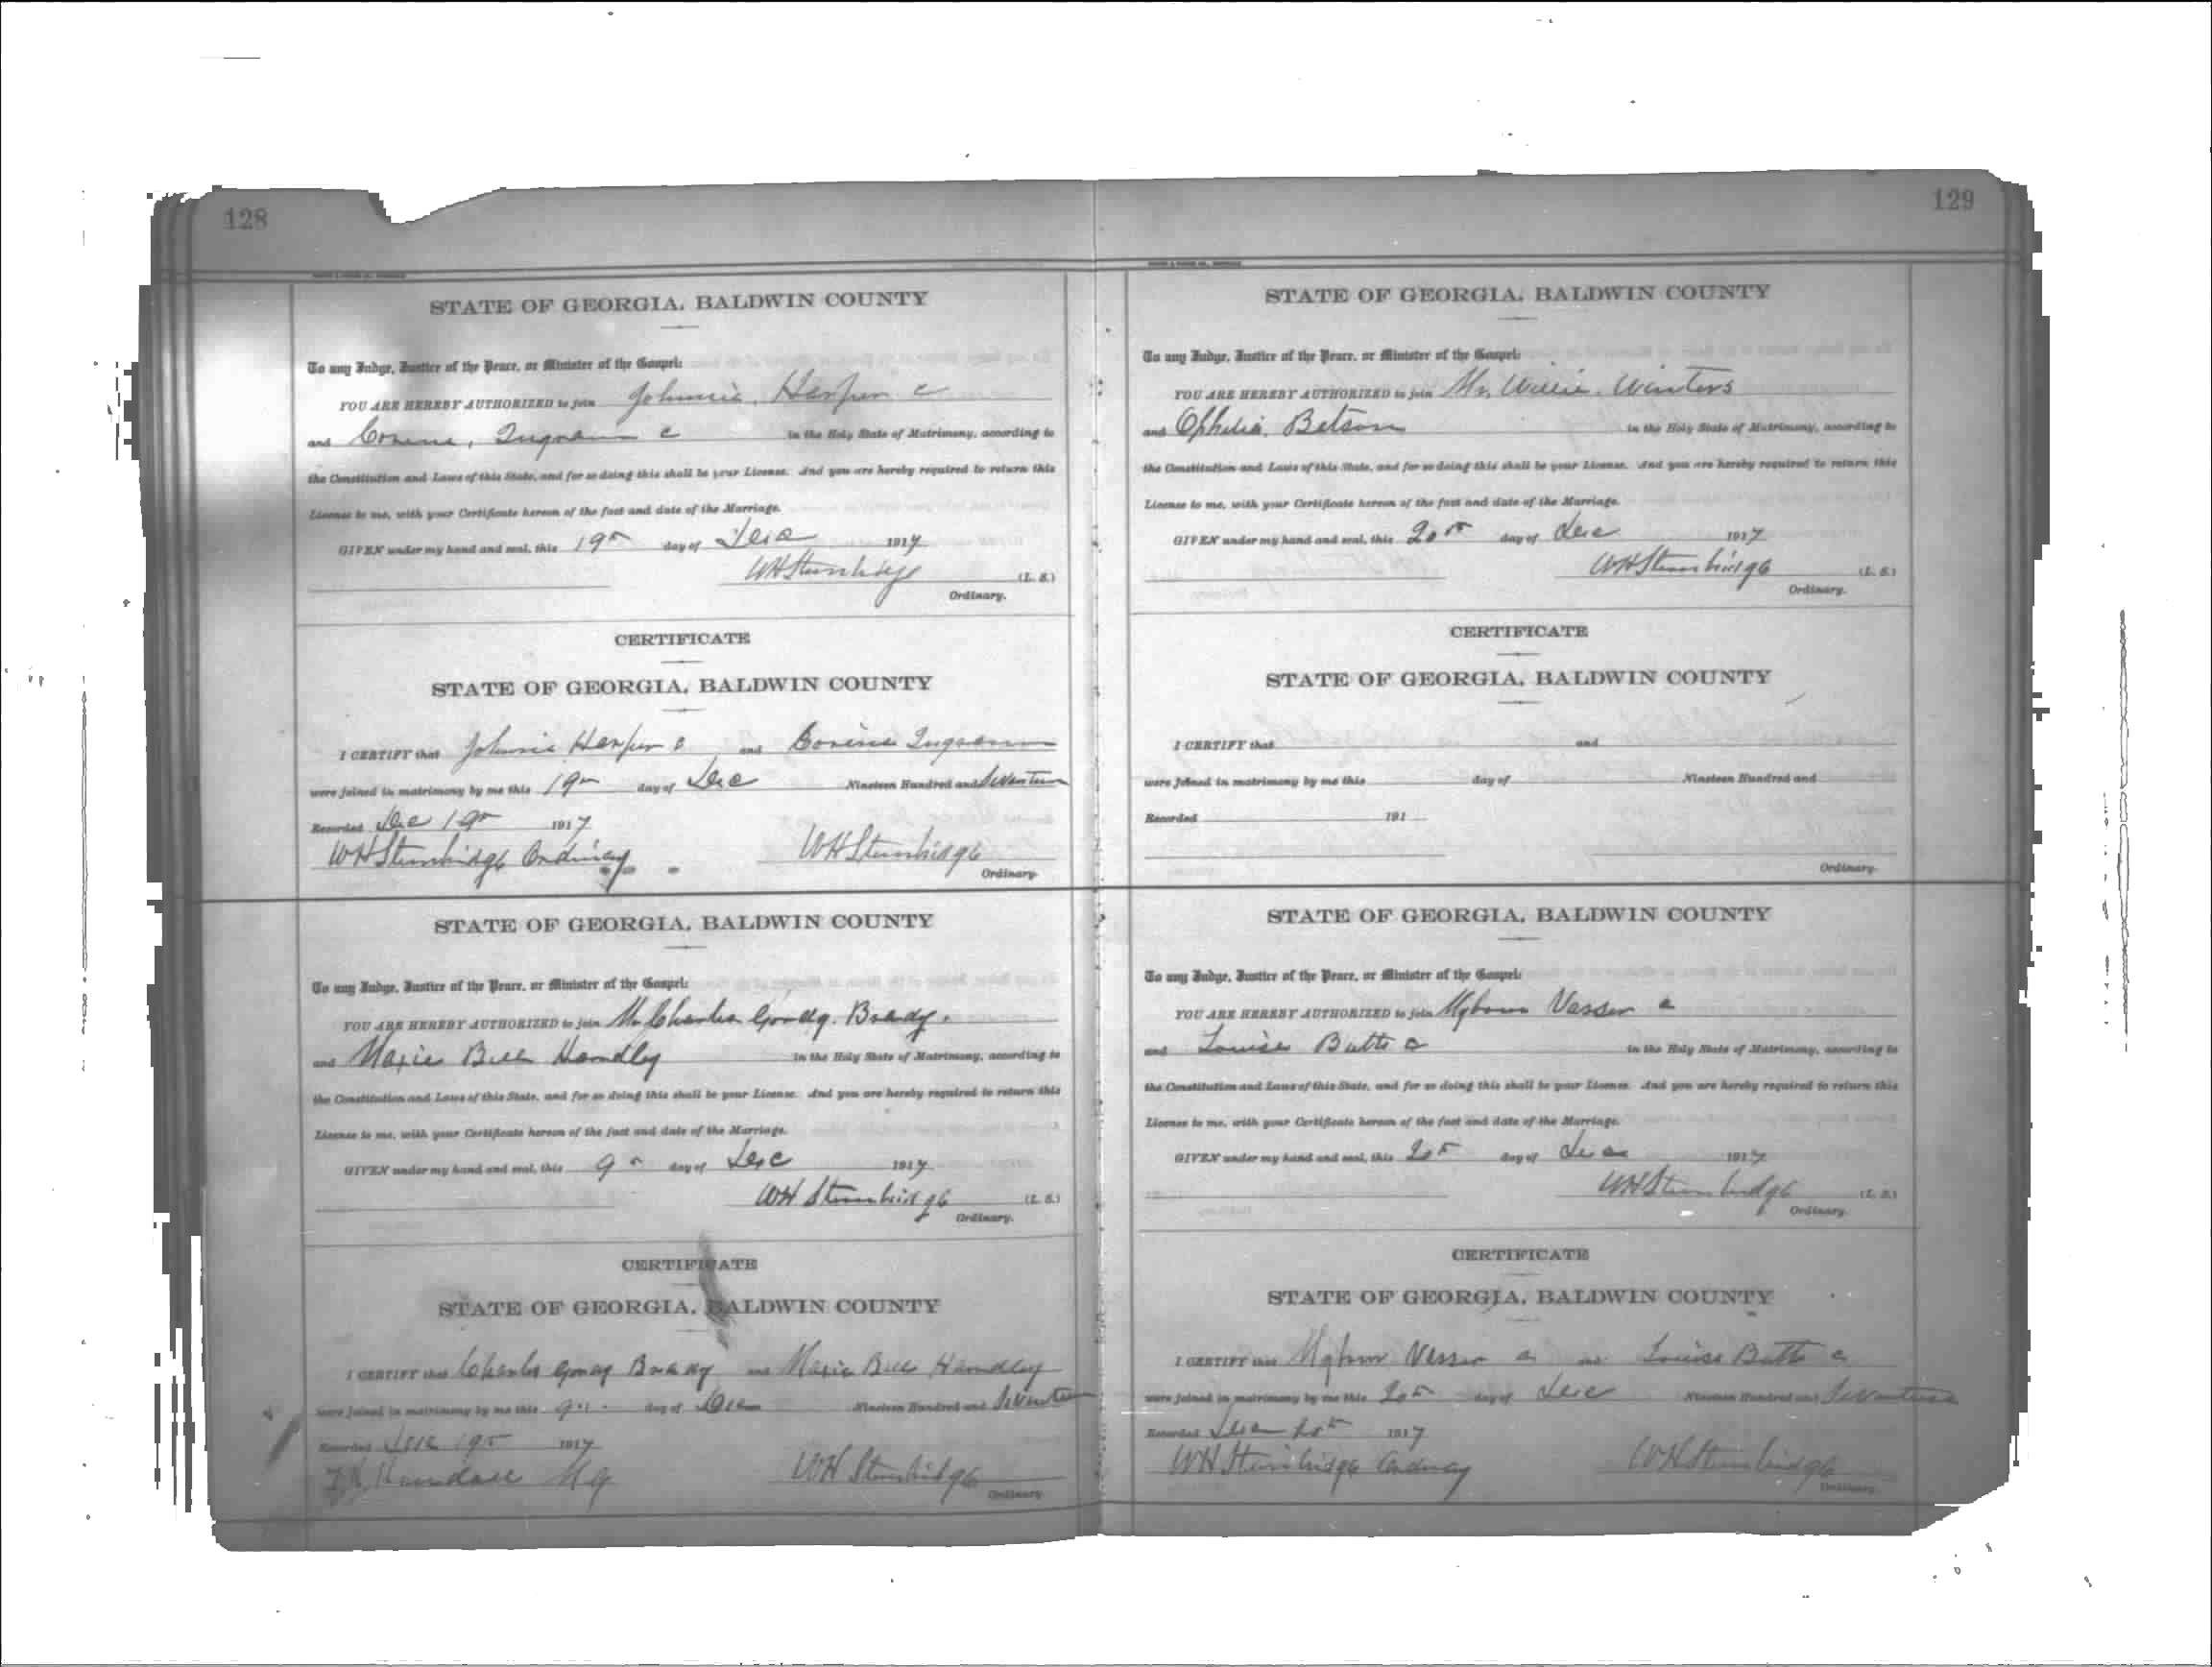 128
STATE OF GEORGIA, BALDWIN COUNTY
To any Judge, Justice of the Peace, or Minister of the Gospel:
YOU ARE HEREBY AUTHORIZED to join Johnnie Harper c
and Corene, Ingram c in the Holy State of Matrimony, according to
the Constitution and Laws of this State, and for so doing this shall be your License. And you are hereby required to return this
License to me, with your Certificate hereon of the fact and date of the Marriage.
GIVEN under my hand and seal, this 19th day of Dec 1917
WH Stembridge (L. S.)
Ordinary.
CERTIFICATE
STATE OF GEORGIA, BALDWIN COUNTY
I CERTIFY that Johnnie Harper c and Ingram
were joined in matrimony by me this 19th day of Dec Nineteen Hundred and Seventeen
Recorded Dec 19th 1917
WH Stembridge Ordinary WH Stembridge
Ordinary.
STATE OF GEORGIA, BALDWIN COUNTY
To any Judge, Justice of the Peace, or Minister of the Gospel:
YOU ARE HEREBY AUTHORIZED to join Mr Charles Brady.
and Bell Handley in the Holy State of Matrimony, according to
the Constitution and Laws of this State, and for so doing this shall be your License. And you are hereby required to return this
License to me, with your Certificate hereon of the fact and date of the Marriage.
GIVEN under my hand and seal, this 9th day of Dec 1917
WH Stembridge (L. S.)
Ordinary.
CERTIFICATE
STATE OF GEORGIA, BALDWIN COUNTY
I CERTIFY that Charles Brady and Bell Handley
were joined in matrimony by me this 9th day of Dec Nineteen Hundred and Seventeen
Recorded Dec 19th 1917
M.G WH Stembridge
Ordinary.
129
STATE OF GEORGIA, BALDWIN COUNTY
To any Judge, Justice of the Peace, or Minister of the Gospel:
YOU ARE HEREBY AUTHORIZED to join Mr. Willie Winters
and Ophelia Betson in the Holy State of Matrimony, according to
the Constitution and Laws of this State, and for so doing this shall be your License. And you are hereby required to return this
License to me, with your Certificate hereon of the fact and date of the Marriage.
GIVEN under my hand and seal, this 20th day of Dec 1917
WH Stembridge (L. S.)
Ordinary.
CERTIFICATE
STATE OF GEORGIA, BALDWIN COUNTY
I CERTIFY that and
were joined in matrimony by me this day of Nineteen Hundred and
Recorded 191
Ordinary.
STATE OF GEORGIA, BALDWIN COUNTY
To any Judge, Justice of the Peace, or Minister of the Gospel:
YOU ARE HEREBY AUTHORIZED to join Vasser c
and Louise Butts c in the Holy State of Matrimony, according to
the Constitution and Laws of this State, and for so doing this shall be your License. And you are hereby required to return this
License to me, with your Certificate hereon of the fact and date of the Marriage.
GIVEN under my hand and seal, this 20th day of Dec 1917
WH Stembridge (L. S.)
Ordinary.
CERTIFICATE
STATE OF GEORGIA, BALDWIN COUNTY
I CERTIFY that Vasser c and Louise Butts c
were joined in matrimony by me this 20th day of Dec Nineteen Hundred and Seventeen
Recorded Dec 20th 1917
WH Stembridge Ordinary WH Stembridge
Ordinary.